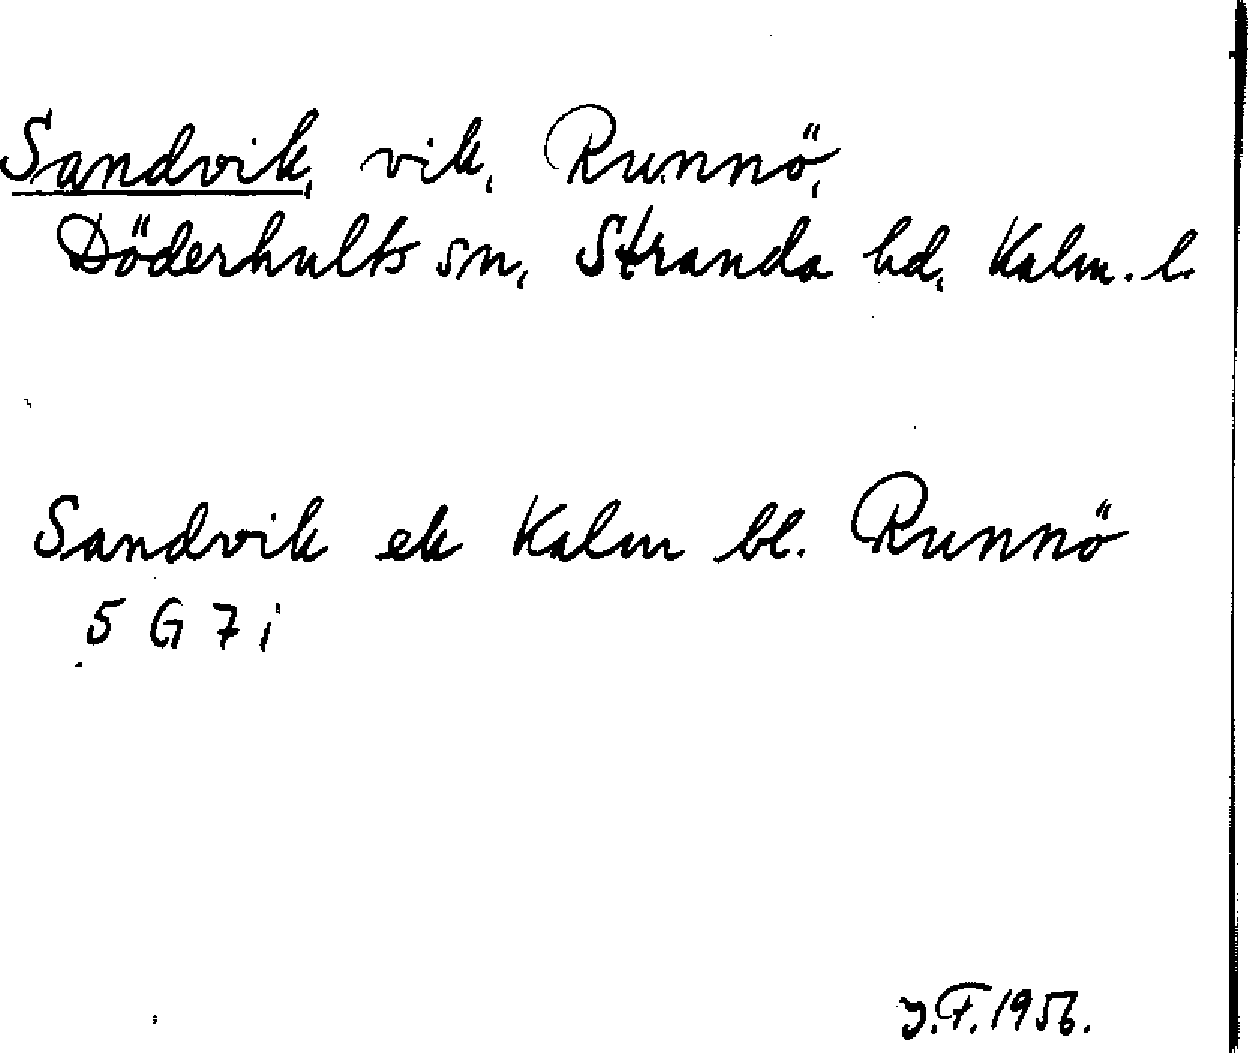 Sandvik, vik, Runnö,
Döderhults sn, Stranda hd, Kalm. l.
Sandvik ek Kalm bl. Runnö
5 G 7 i
y.F. 1956.